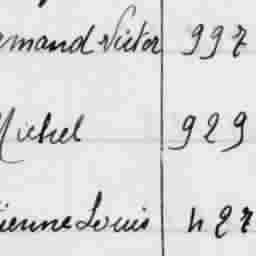 rmand Victor 997
Michel 929
ienne Louis 427